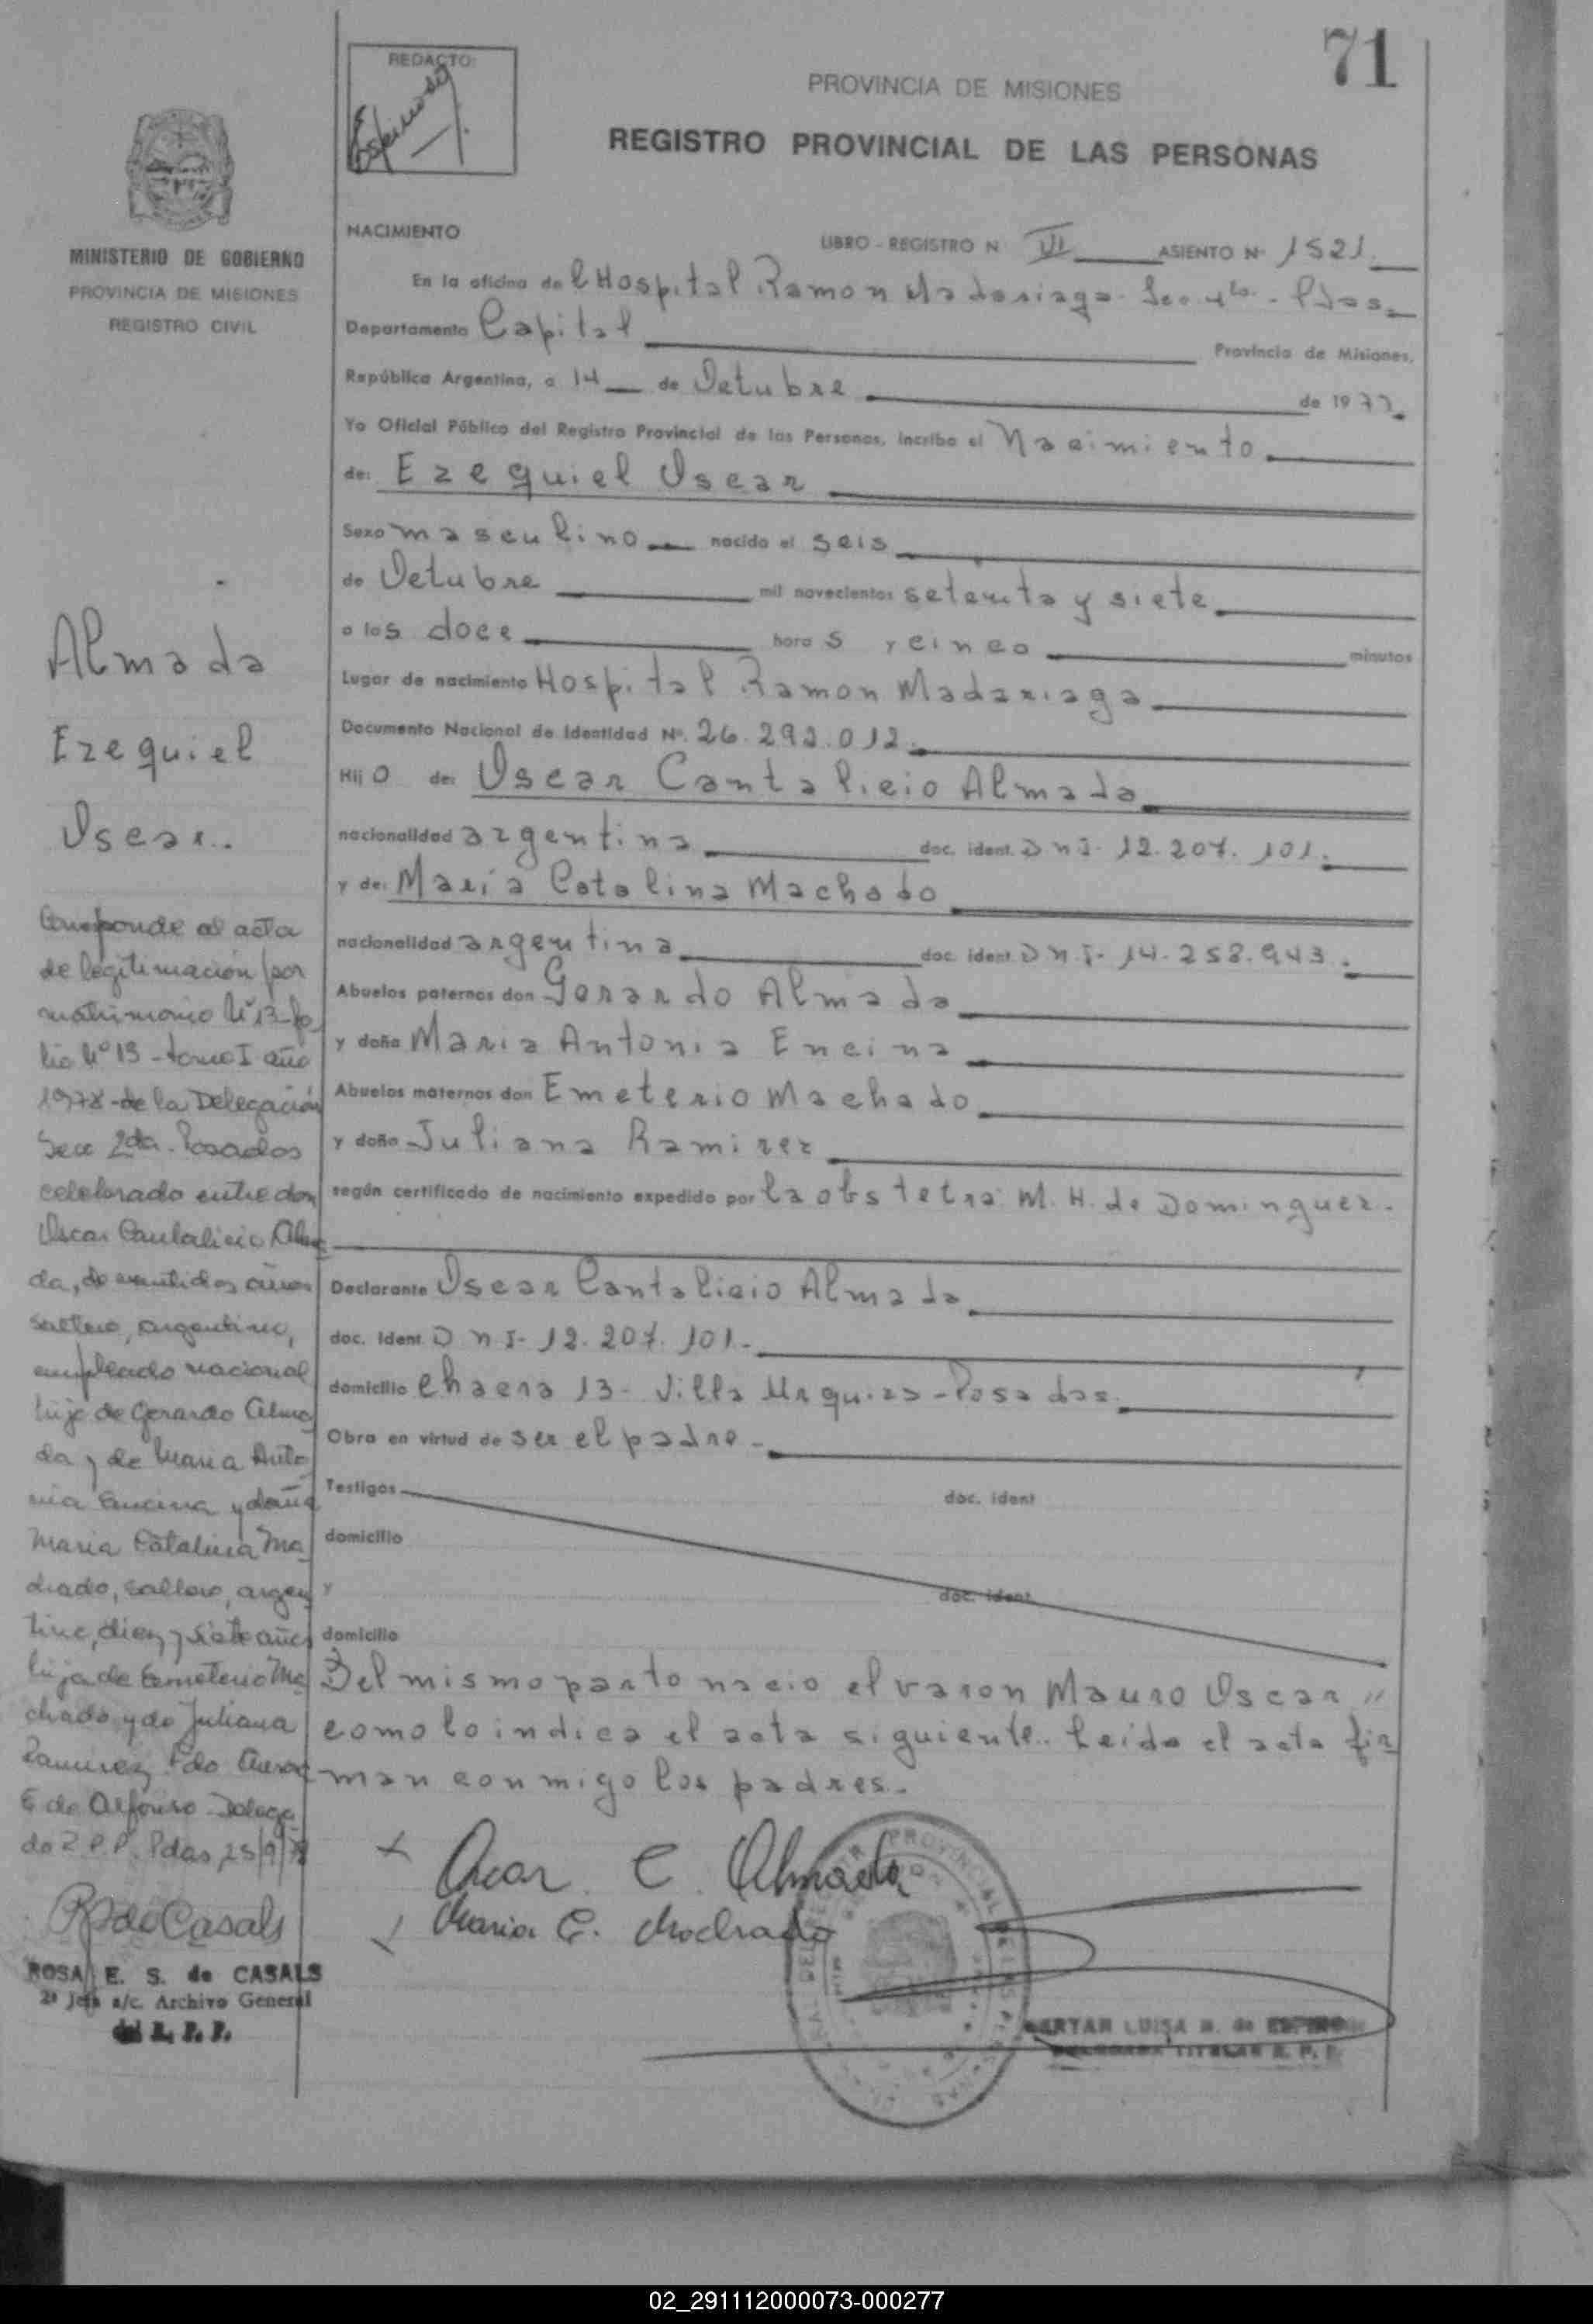 71
REDACTO:
PROVINCIA DE MISIONES
REGISTRO PROVINCIAL DE LAS PERSONAS
MINISTERIO DE GOBIERNO
PROVINCIA DE MISIONES
REGISTRO CIVIL
NACIMIENTO
LIBRO - REGISTRO N VI ASIENTO Nº 1521.
En la oficina del Hospital Ramon Madariaga. Sec 4ta. - Pdas.
Departamento Capital Provincia de Misiones,
República Argentina, a 14 de Octubre de 1977.
Yo Oficial Público del Registro Provincial de las Personas, incribo el Nacimiento
de: Ezequiel Oscar
Sexo masculino nacido el seis
de Octubre mil novecientos setenta y siete
a las doce horas y cinco minutos
Lugar de nacimiento Hospital Ramon Madariaga
Documento Nacional de Identidad Nº. 26.292.012.
Hijo de: Oscar Cantalicio Almada
nacionalidad argentina doc. ident. DNI- 12.207.101.
y de: María Catalina Machado
nacionalidad argentina doc. ident. DNI- 14.258.943.
Abuelos paternos don Gerardo Almada
y doña Maria Antonia Encina
Abuelos maternos don Emeterio Machado
y doña Juliana Ramirez
según certificado de nacimiento expedido por la obstetra M. H. de Dominguez.
Declarante Oscar Cantalicio Almada
doc. Ident. DNI- 12.207.101.-
domicilio Chacra 13 - Villa Urquiza - Posadas.
Obra en virtud de ser el padre.-
Testigos doc. ident
domicilio
y doc. ident.
domicilio
Del mismo parto nacio el varon Mauro Oscar "
como lo indica el acta siguiente.. Leida el acta fir
man conmigo los padres.-
Oscar C. Almada
Maria C. Machado
LUISA
TITULAR R. P. P.
Almada
Ezequiel
Oscar..
Corresponde al acta
de legitimación por
matrimonio Nº 13 fo
lio Nº 13 - tomo I año
1978 - de la Delegación
Secc 2da. Posadas
celebrado entre don
Oscar Cantalicio Alma
da, de veintidos años
soltero, argentino,
empleado nacional
hijo de Gerardo Alma
da y de Maria Anto
nia Encina y doña
Maria Catalina Ma
chado, soltera, argen
tina, diez y siete años
hija de Emeterio Ma
chado y de Juliana
Ramirez. Fdo
E de Alfonso Delega
da R.P.P. Pdas 25/9/78
R de Casals
ROSA E. S. de CASALS
2ª Jefa a/c. Archivo General
del R. P. P.
02_291112000073-000277